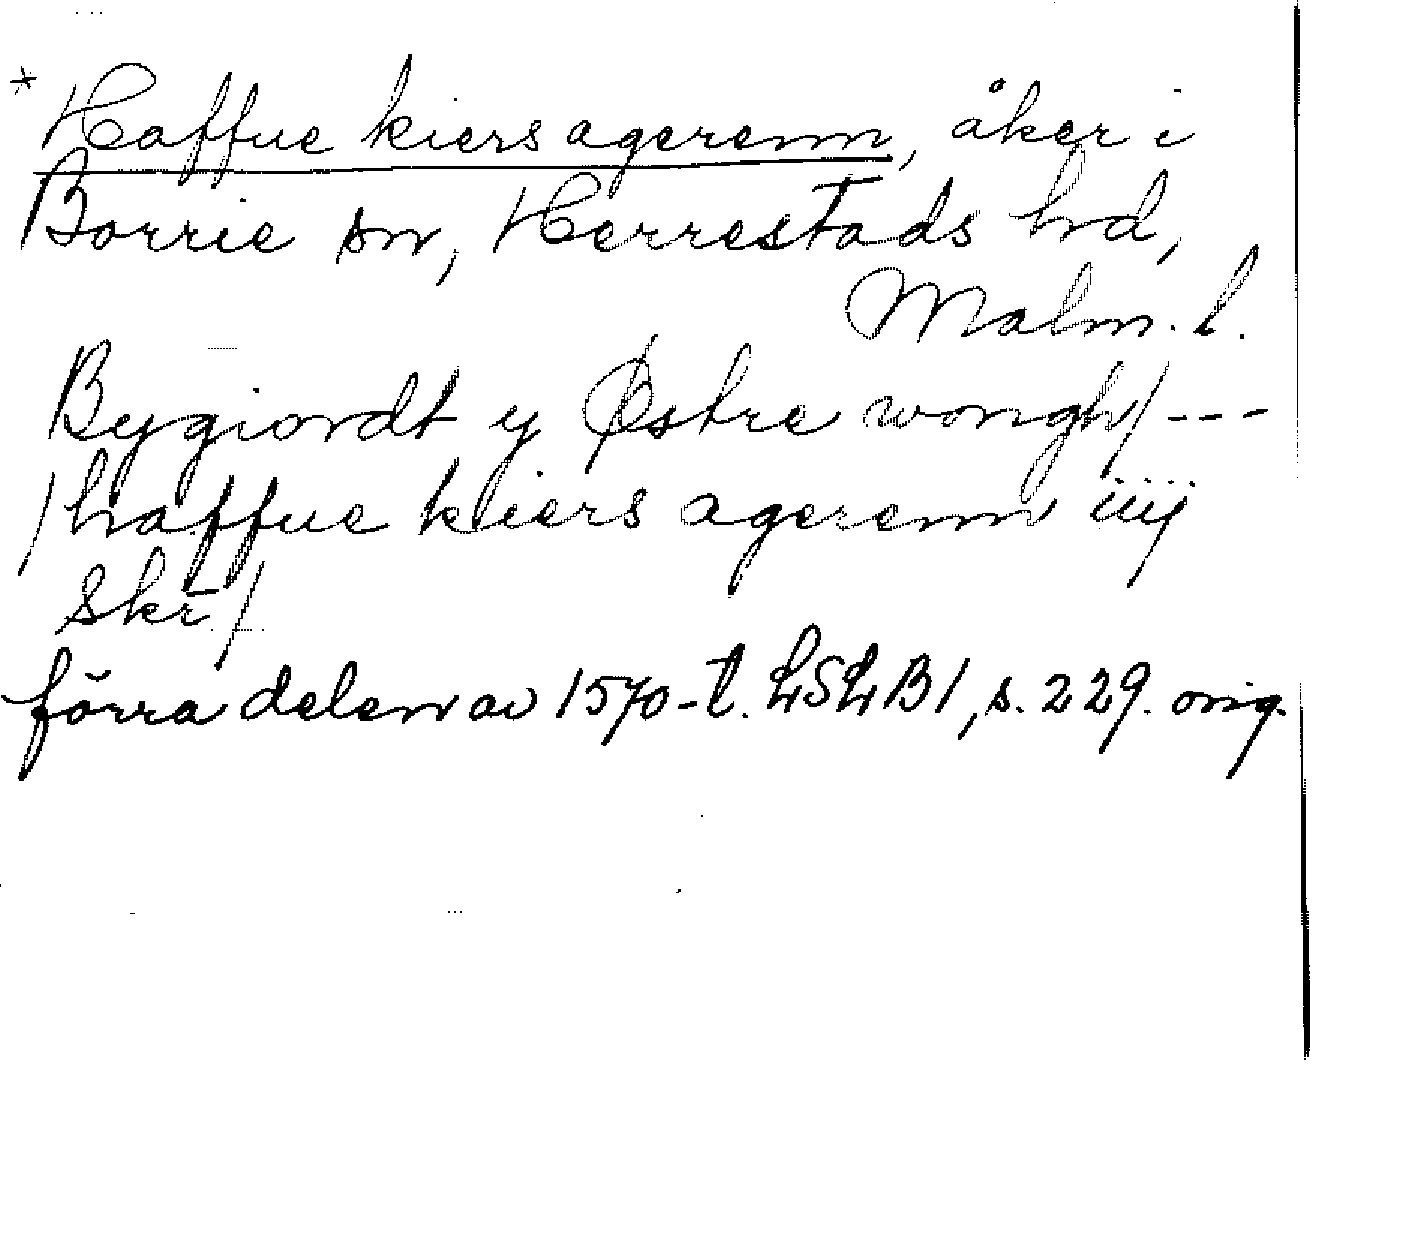 * Haffue kiers agerenn, åker i
Borrie sn, Herrestads hd,
Malm. l.
Bygiordt y Østre wongh/ ---
/haffue kiers agerenn iiij
skr/
förra delen av 1570-t. LSLB1, s. 229. orig.